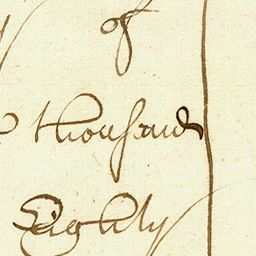 of
thousand
Eighty